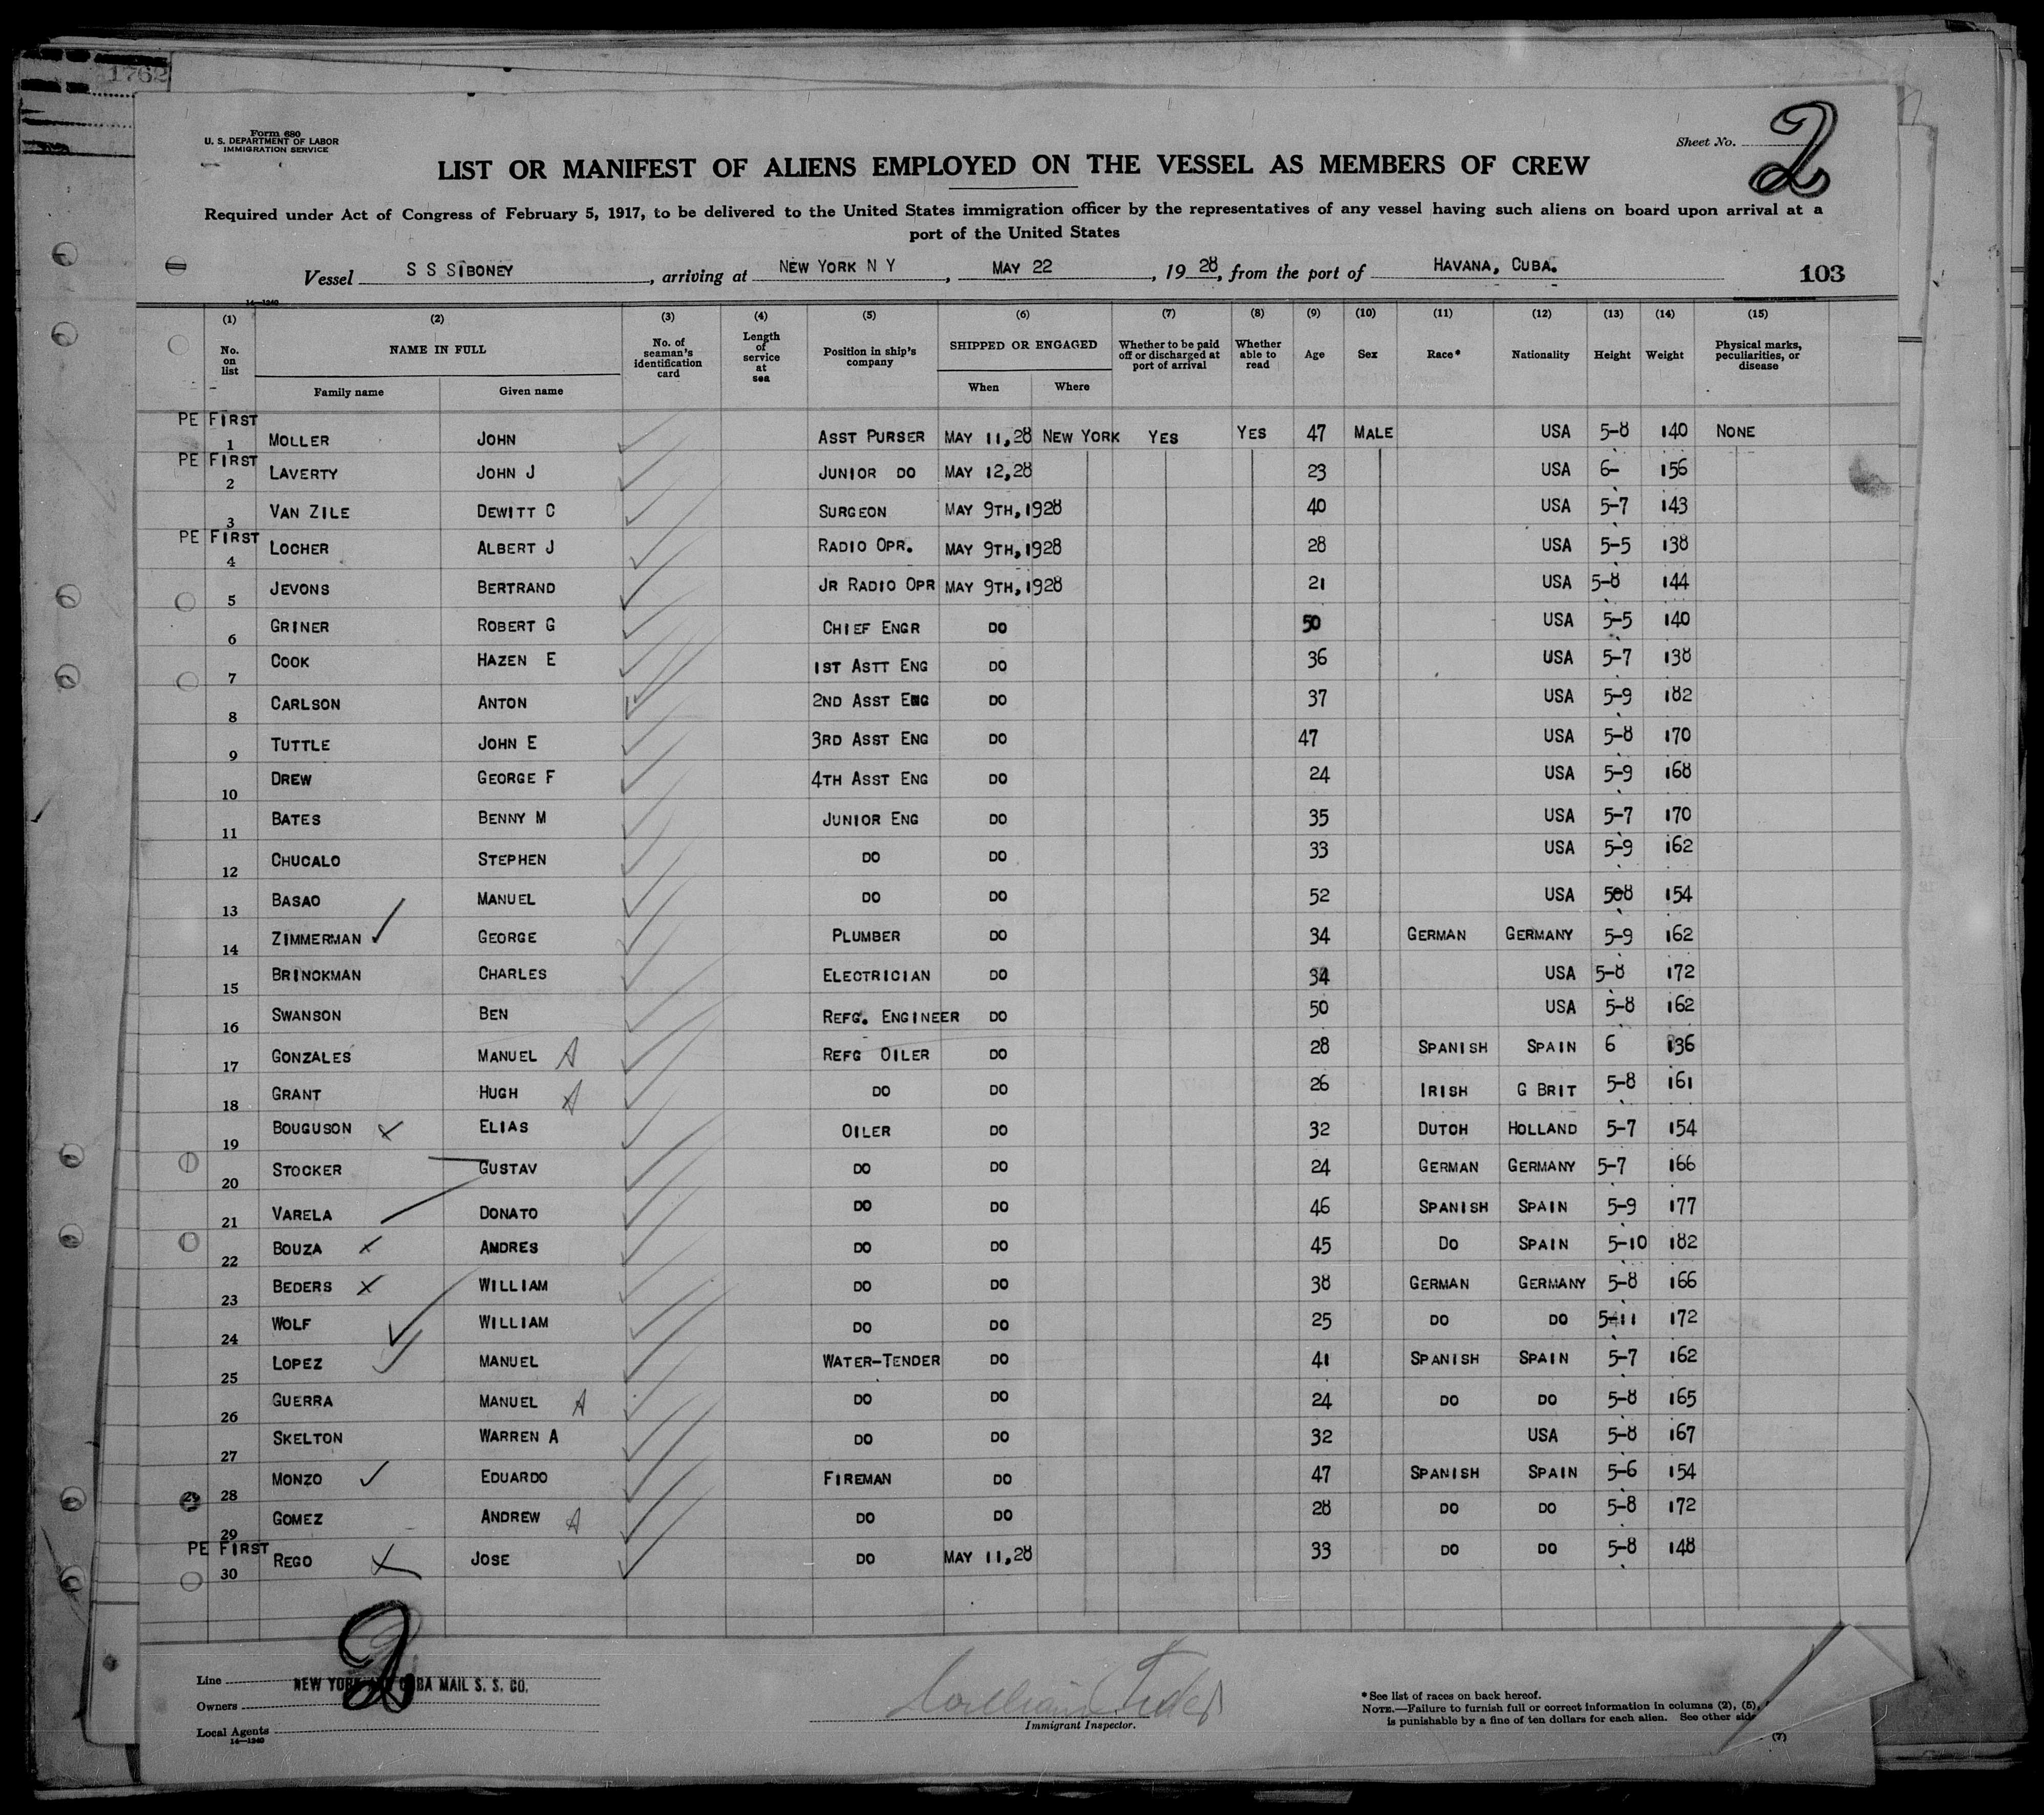 1762
Form 680
U. S. DEPARTMENT OF LABOR
IMMIGRATION SERVICE
Sheet No. 2
LIST OR MANIFEST OF ALIENS EMPLOYED ON THE VESSEL AS MEMBERS OF CREW
Required under Act of Congress of February 5, 1917, to be delivered to the United States immigration officer by the representatives of any vessel having such aliens on board upon arrival at a
port of the United States
Vessel S S SIBONEY, arriving at NEW YORK N Y, MAY 22, 1928, from the port of HAVANA, CUBA. 103
14—1240
(1) (2) (3) (4) (5) (6) (7) (8) (9) (10) (11) (12) (13) (14) (15)
No. on list NAME IN FULL No. of seaman's identification card Length of service at sea Position in ship's company SHIPPED OR ENGAGED Whether to be paid off or discharged at port of arrival Whether able to read Age Sex Race* Nationality Height Weight Physical marks, peculiarities, or disease
Family name Given name When Where
PE FIRST
1 MOLLER JOHN ASST PURSER MAY 11,28 NEW YORK YES YES 47 MALE USA 5-8 140 NONE
PE FIRST
2 LAVERTY JOHN J JUNIOR DO MAY 12,28 23 USA 6- 156
3 VAN ZILE DEWITT C SURGEON MAY 9TH,1928 40 USA 5-7 143
PE FIRST
4 LOCHER ALBERT J RADIO OPR. MAY 9TH,1928 28 USA 5-5 138
5 JEVONS BERTRAND JR RADIO OPR MAY 9TH,1928 21 USA 5-8 144
6 GRINER ROBERT G CHIEF ENGR DO 50 USA 5-5 140
7 COOK HAZEN E 1ST ASTT ENG DO 36 USA 5-7 138
8 CARLSON ANTON 2ND ASST ENG DO 37 USA 5-9 182
9 TUTTLE JOHN E 3RD ASST ENG DO 47 USA 5-8 170
10 DREW GEORGE F 4TH ASST ENG DO 24 USA 5-9 168
11 BATES BENNY M JUNIOR ENG DO 35 USA 5-7 170
12 CHUCALO STEPHEN DO DO 33 USA 5-9 162
13 BASAO MANUEL DO DO 52 USA 5-8 154
14 ZIMMERMAN GEORGE PLUMBER DO 34 GERMAN GERMANY 5-9 162
15 BRINCKMAN CHARLES ELECTRICIAN DO 34 USA 5-8 172
16 SWANSON BEN REFG. ENGINEER DO 50 USA 5-8 162
17 GONZALES MANUEL A REFG OILER DO 28 SPANISH SPAIN 6 136
18 GRANT HUGH A DO DO 26 IRISH G BRIT 5-8 161
19 BOUGUSON X ELIAS OILER DO 32 DUTCH HOLLAND 5-7 154
20 STOCKER GUSTAV DO DO 24 GERMAN GERMANY 5-7 166
21 VARELA DONATO DO DO 46 SPANISH SPAIN 5-9 177
22 BOUZA X AMDRES DO DO 45 DO SPAIN 5-10 182
23 BEDERS X WILLIAM DO DO 38 GERMAN GERMANY 5-8 166
24 WOLF WILLIAM DO DO 25 DO DO 5-11 172
25 LOPEZ MANUEL WATER-TENDER DO 41 SPANISH SPAIN 5-7 162
26 GUERRA MANUEL A DO DO 24 DO DO 5-8 165
27 SKELTON WARREN A DO DO 32 USA 5-8 167
28 MONZO EDUARDO FIREMAN DO 47 SPANISH SPAIN 5-6 154
29 GOMEZ ANDREW A DO DO 28 DO DO 5-8 172
PE FIRST
30 REGO X JOSE DO MAY 11,28 33 DO DO 5-8 148
2
Line NEW YORK AND CUBA MAIL S. S. CO.
Owners
Local Agents
14—1240
Immigrant Inspector.
*See list of races on back hereof.
NOTE.—Failure to furnish full or correct information in columns (2), (5),
is punishable by a fine of ten dollars for each alien. See other side